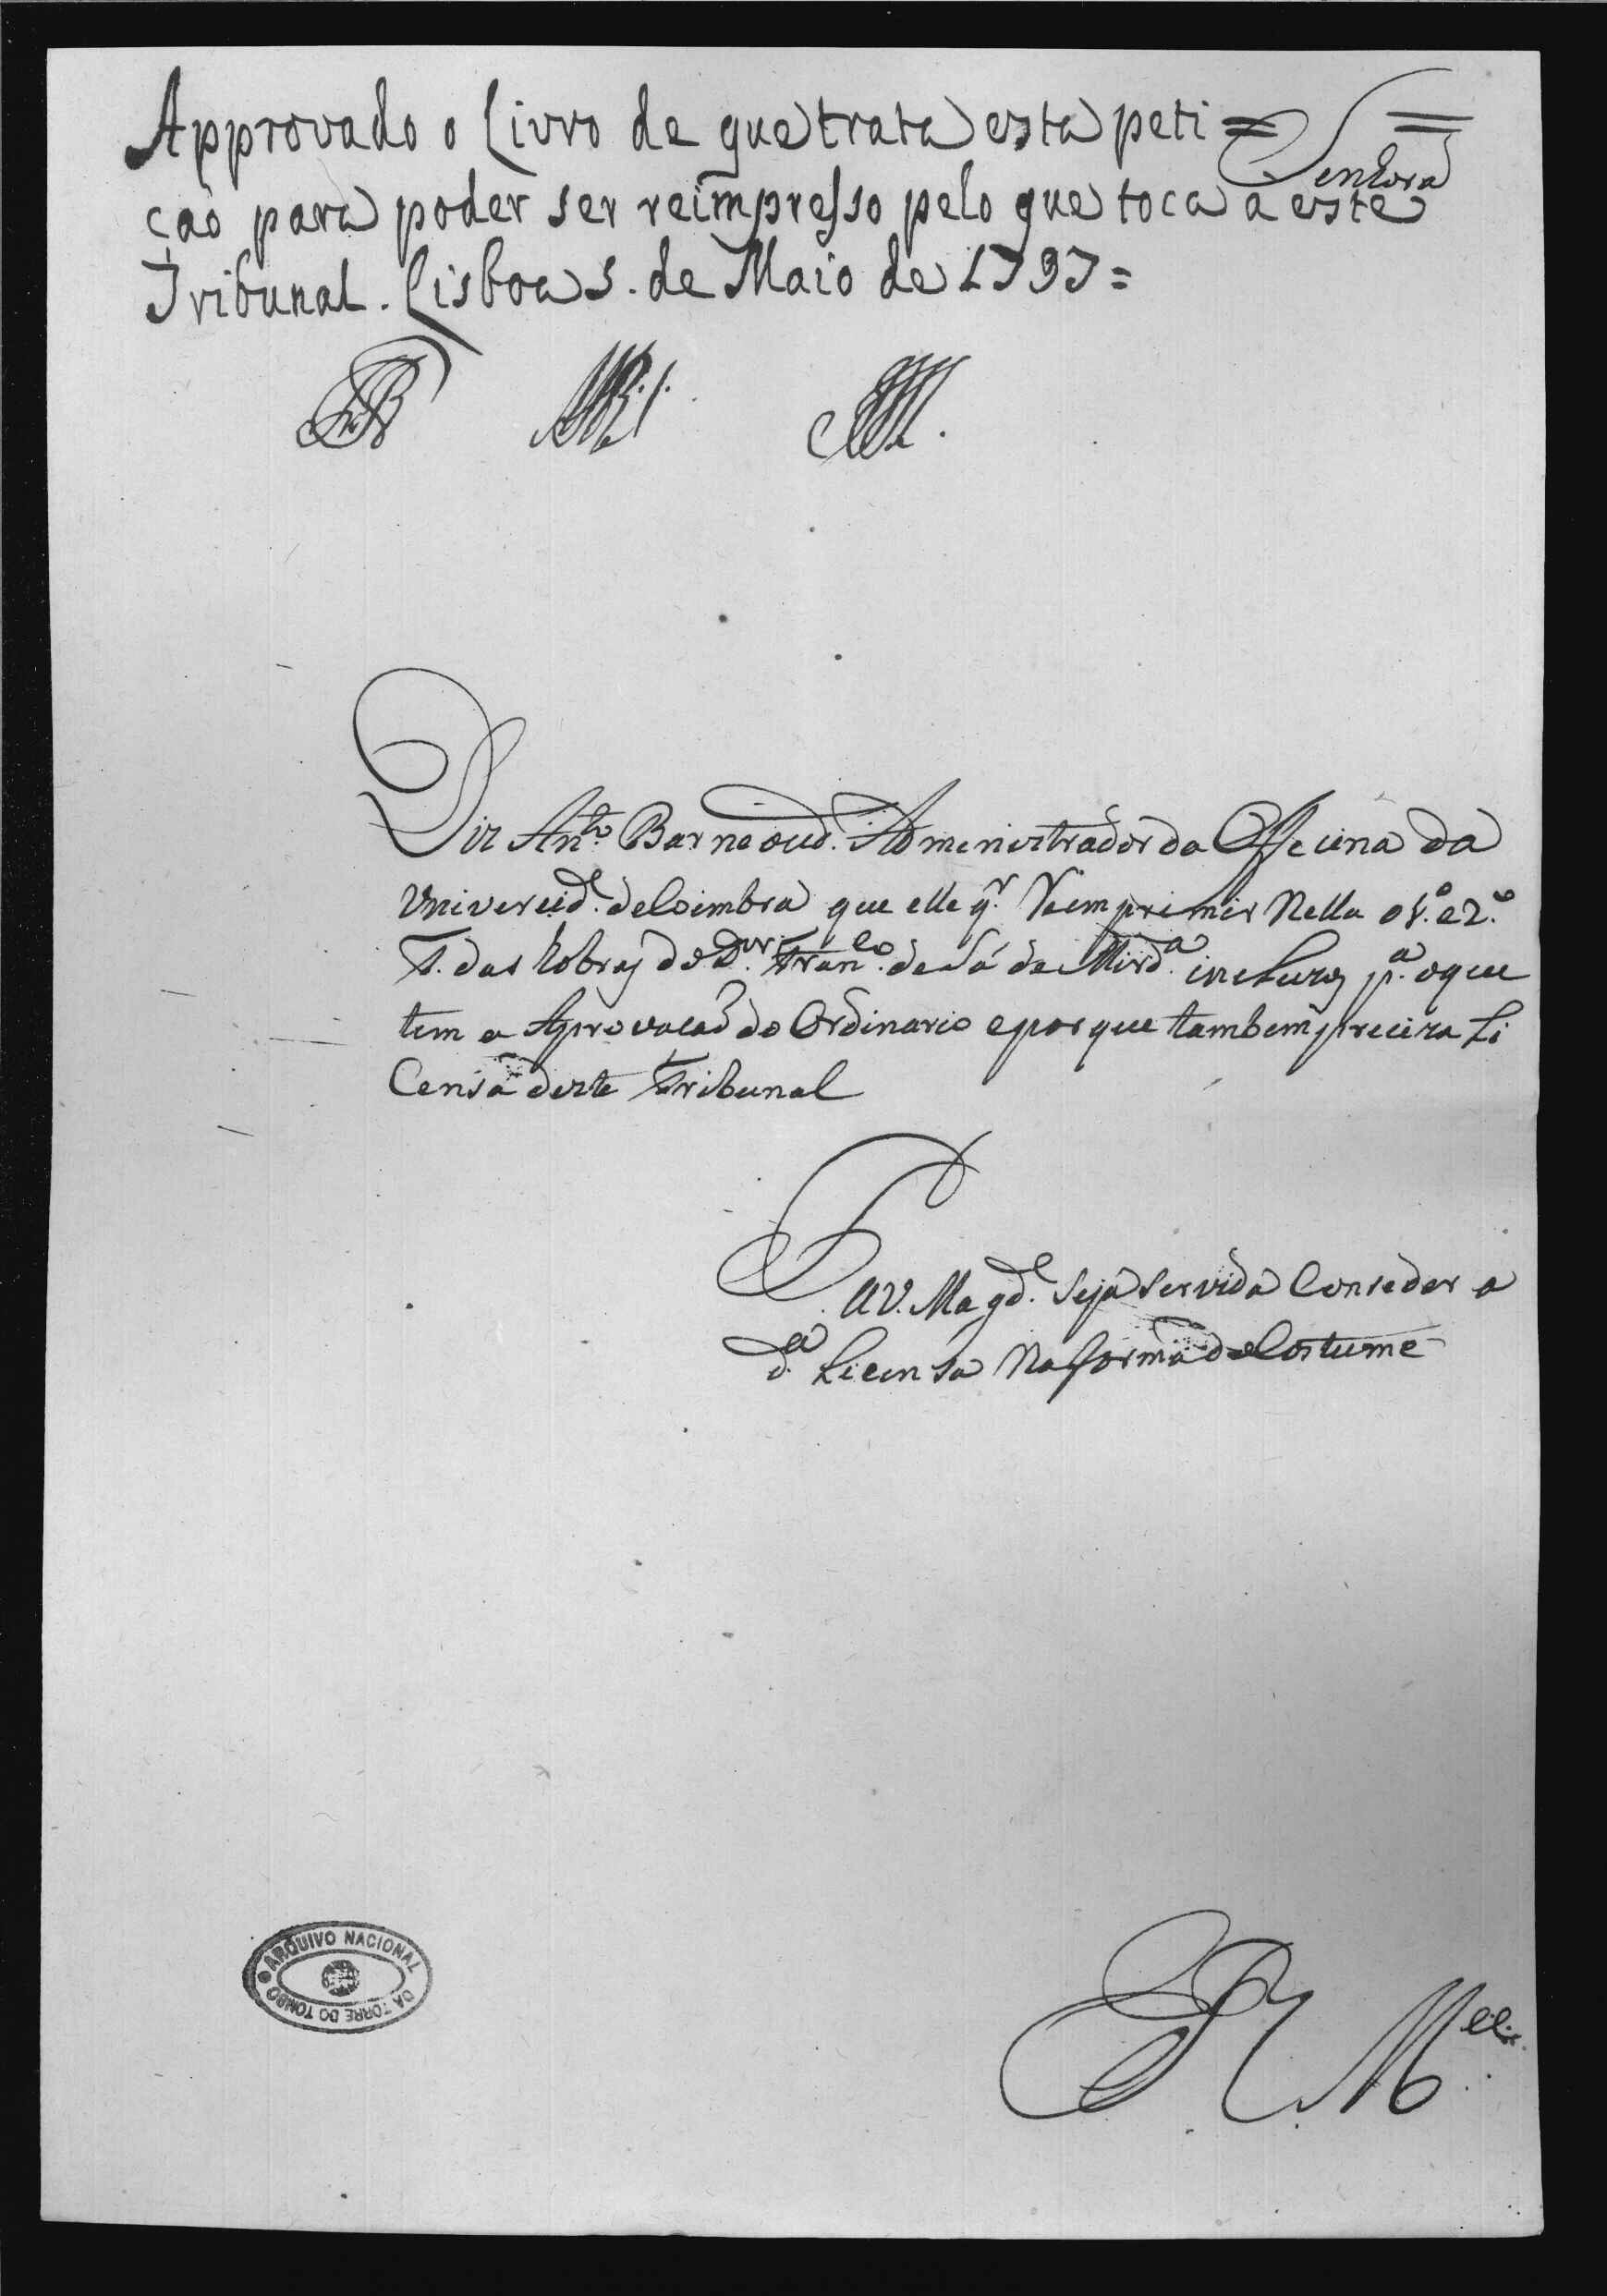 Approvado o Livro de que trata esta peti =
= Senhora =
çaõ para poder ser reimpresso pelo que toca a este
Tribunal. Lisboa 5. de Maio de 1797 =
Diz Ant.º Barneoud. Admenistrador da Offecina da
Univercid.e de Coimbra que elle q.r Reemprimir Nella o 1.º e 2.º
T. das hobras do D.or Fran.co de Sá de Mird.a incluzos p.a o que
tem a Aprovacaõ do Ordinario e por que tambem preciza Li
Censa deste Tribunal
P. a V. Magd.e Seja Servida Conseder a
d.a Licensa Na forma do Costume
E R M.ce
ARQUIVO NACIONAL
DA TORRE DO TOMBO